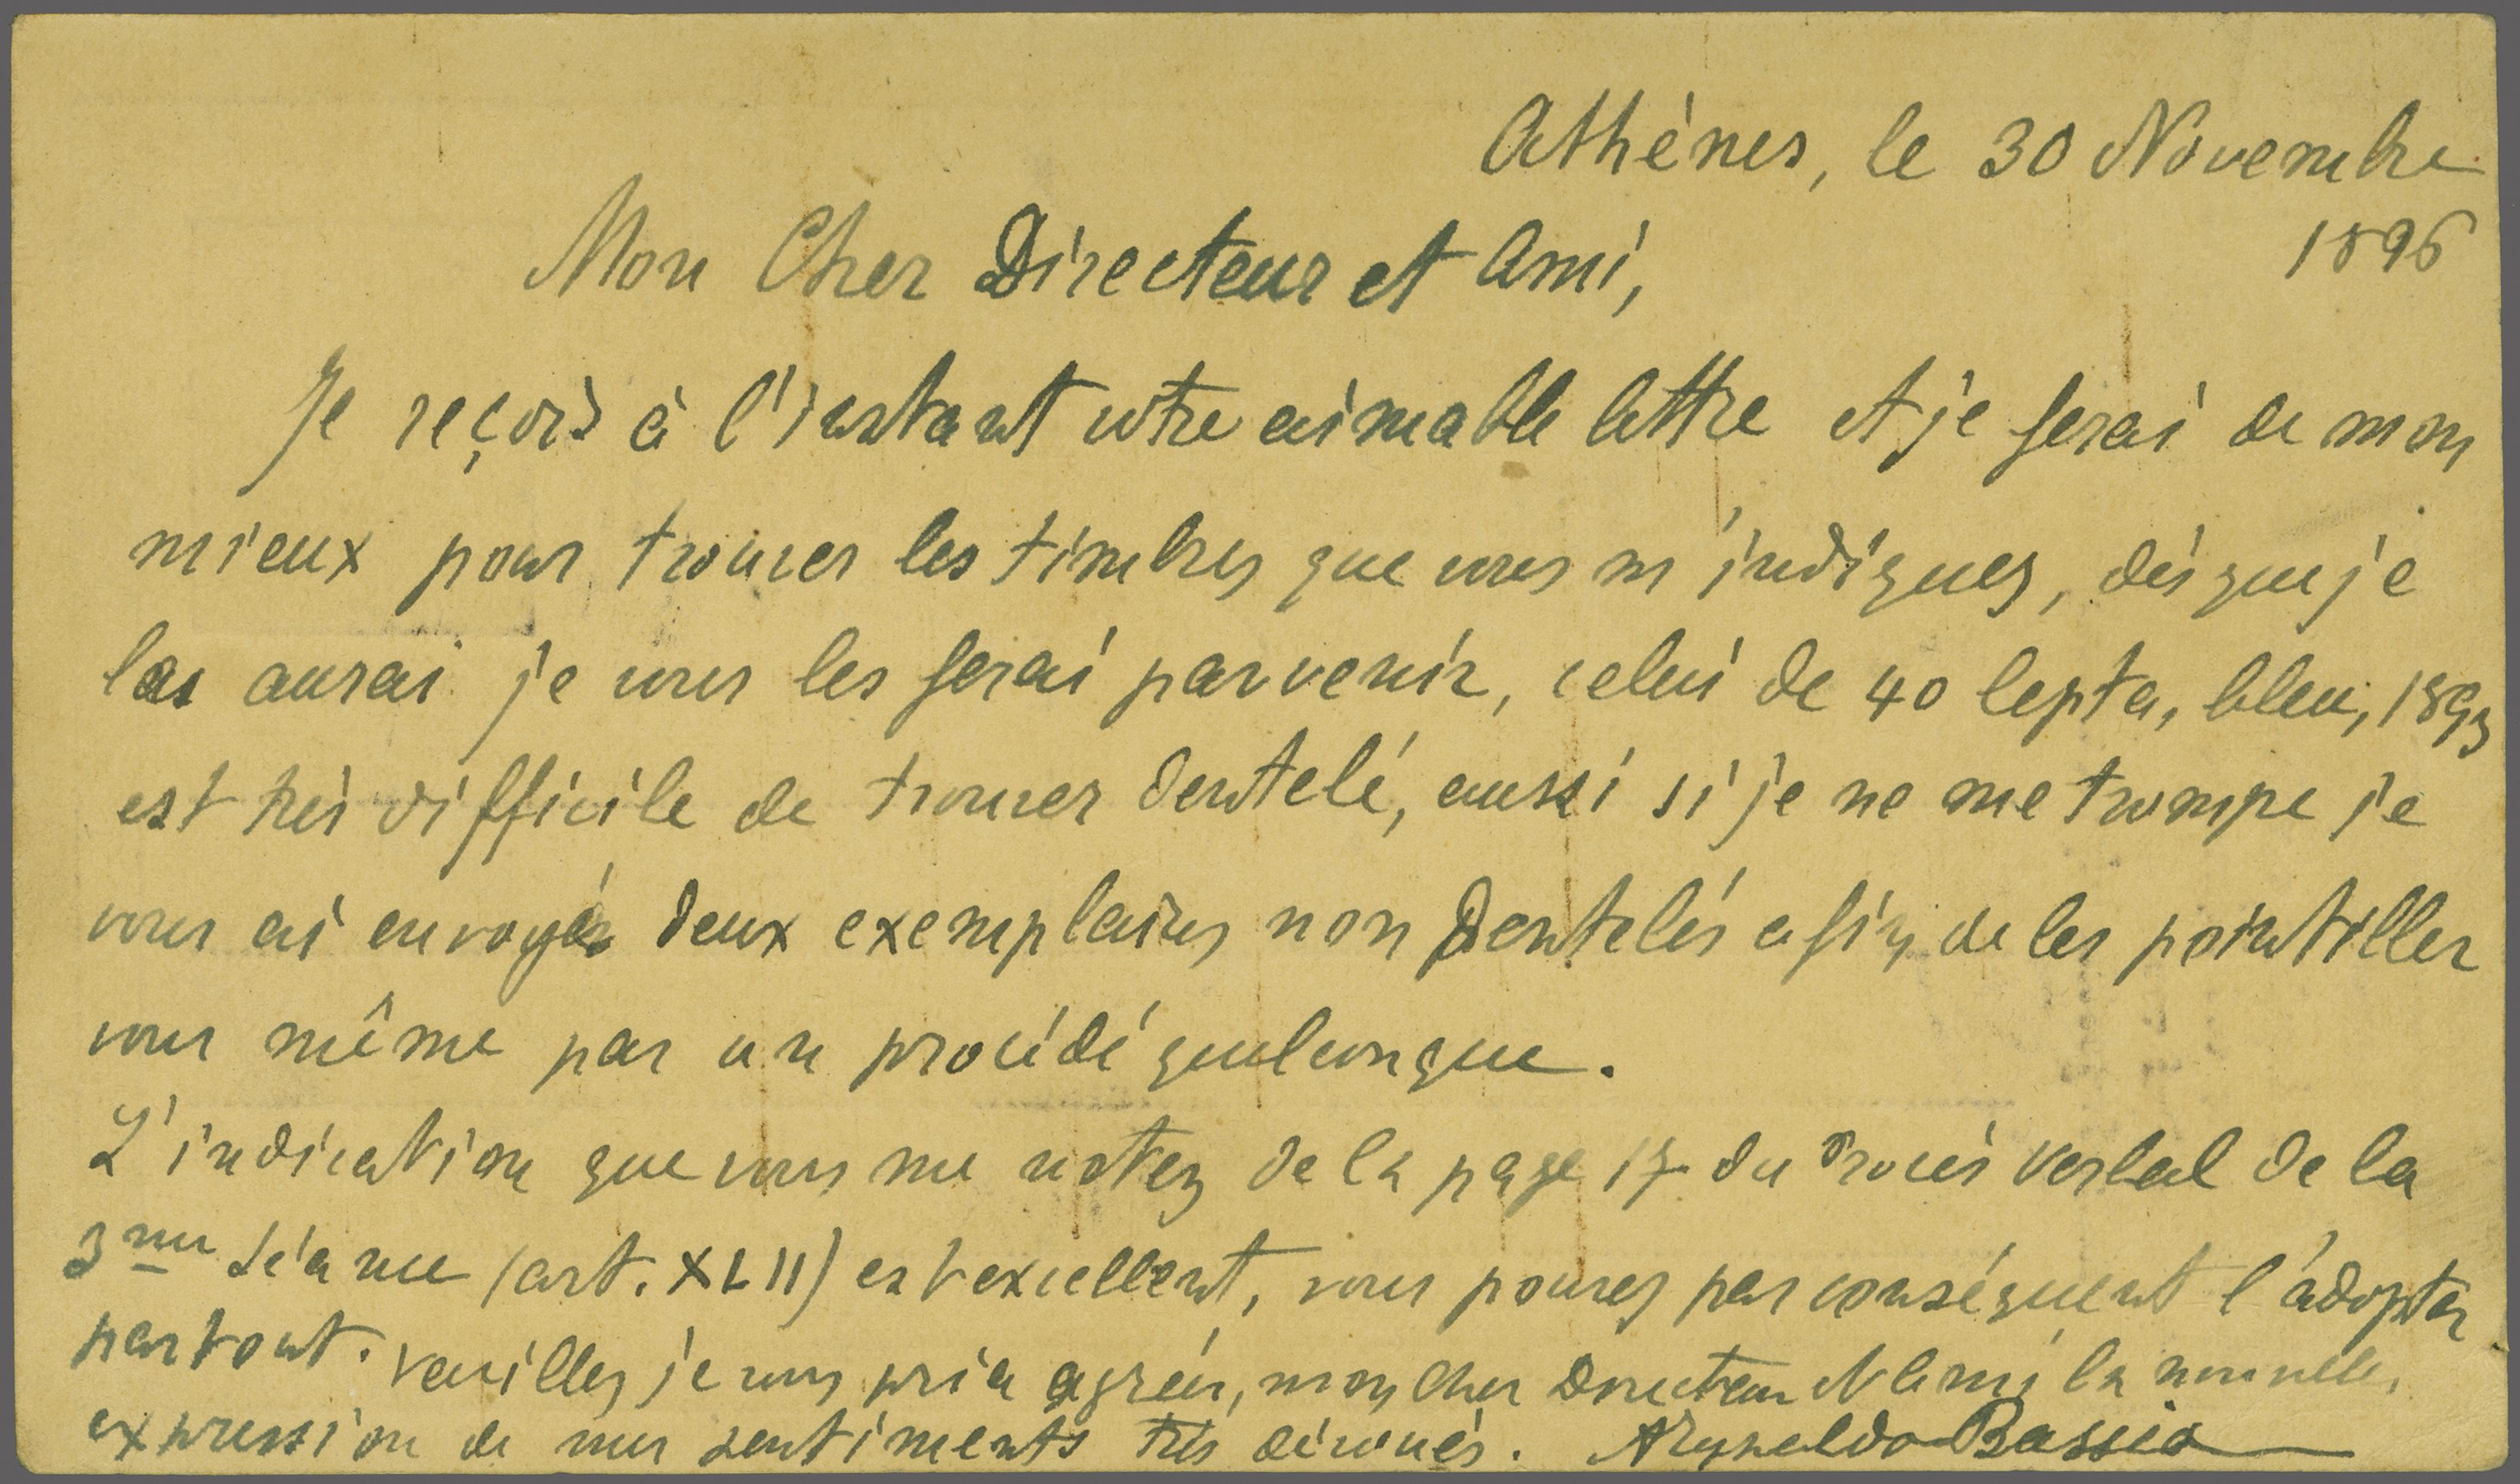 Athènes, le 30 Novembre
1896
Mon Cher Directeur et Ami,
Je reçois à l'instant votre aimable lettre et je ferai de mon
mieux pour trouver les timbres que vous m'indiquez, dès que je
les aurai je vous les ferai parvenir, celui de 40 lepta, bleu, 1893
est très difficile de trouver dentelé, aussi si je ne me trompe je
vous ai envoyé deux exemplaires non dentelés afin de les pointiller
vous même par un procédé quelconque.
L'indication que vous me notez de la page 17 du Procès Verbal de la
3me Séance (art. XLII) est excellent, vous pouvez par conséquent l'adopter
partout. Veuillez je vous prie agréer, mon cher Directeur et Ami la nouvelle
expression de mes sentiments très dévoués. Bassia